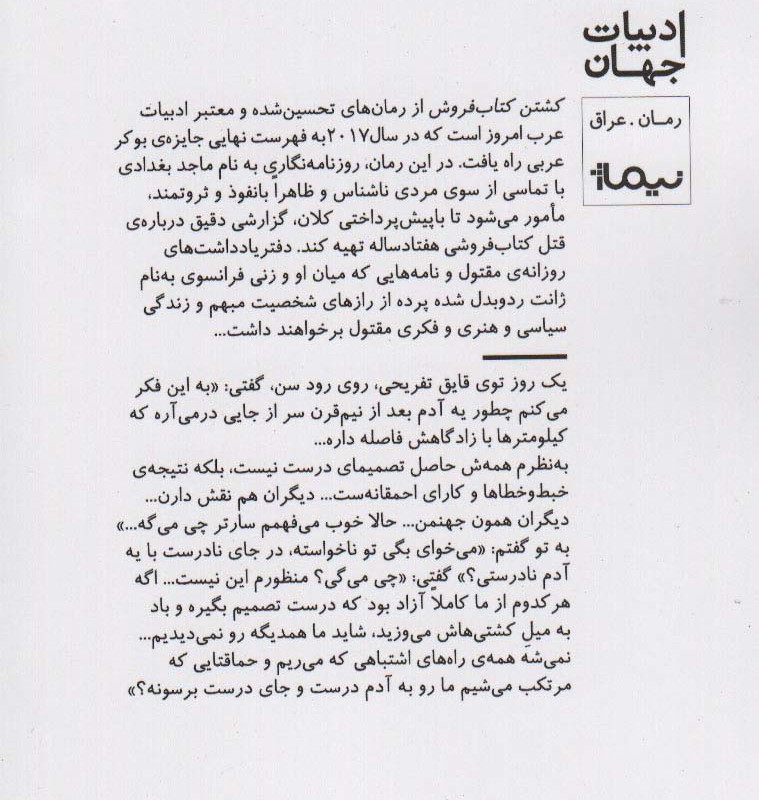 ادبیات
جهان
رمان . عراق
نیماژ
کشتن کتاب‌فروش از رمان‌های تحسین‌شده و معتبر ادبیات
عرب امروز است که در سال۲۰۱۷به فهرست نهایی جایزه‌ی بوکر
عربی راه یافت. در این رمان، روزنامه‌نگاری به نام ماجد بغدادی
با تماسی از سوی مردی ناشناس و ظاهراً بانفوذ و ثروتمند،
مأمور می‌شود تا باپیش‌پرداختی کلان، گزارشی دقیق درباره‌ی
قتل کتاب‌فروشی هفتادساله تهیه کند. دفتریادداشت‌های
روزانه‌ی مقتول و نامه‌هایی که میان او و زنی فرانسوی به‌نام
ژانت ردوبدل شده پرده از رازهای شخصیت مبهم و زندگی
سیاسی و هنری و فکری مقتول برخواهند داشت...
یک روز توی قایق تفریحی، روی رود سن، گفتی: «به این فکر
می‌کنم چطور یه آدم بعد از نیم‌قرن سر از جایی درمی‌آره که
کیلومترها با زادگاهش فاصله داره...
به‌نظرم همه‌ش حاصل تصمیمای درست نیست، بلکه نتیجه‌ی
خبط‌وخطاها و کارای احمقانه‌ست... دیگران هم نقش دارن...
دیگران همون جهنمن... حالا خوب می‌فهمم سارتر چی می‌گه...»
به تو گفتم: «می‌خوای بگی تو ناخواسته، در جای نادرست با یه
آدم نادرستی؟» گفتی: «چی می‌گی؟ منظورم این نیست... اگه
هرکدوم از ما کاملاً آزاد بود که درست تصمیم بگیره و باد
به میلِ کشتی‌هاش می‌وزید، شاید ما همدیگه رو نمی‌دیدیم...
نمی‌شه همه‌ی راه‌های اشتباهی که می‌ریم و حماقتایی که
مرتکب می‌شیم ما رو به آدم درست و جای درست برسونه؟»